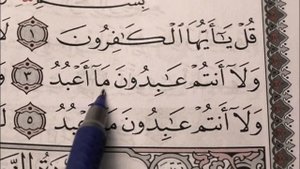 قُلْ يَٰٓأَيُّهَا ٱلْكَٰفِرُونَ ١
وَلَآ أَنتُمْ عَٰبِدُونَ مَآ أَعْبُدُ ٣
وَلَآ أَنتُمْ عَٰبِدُونَ ٥